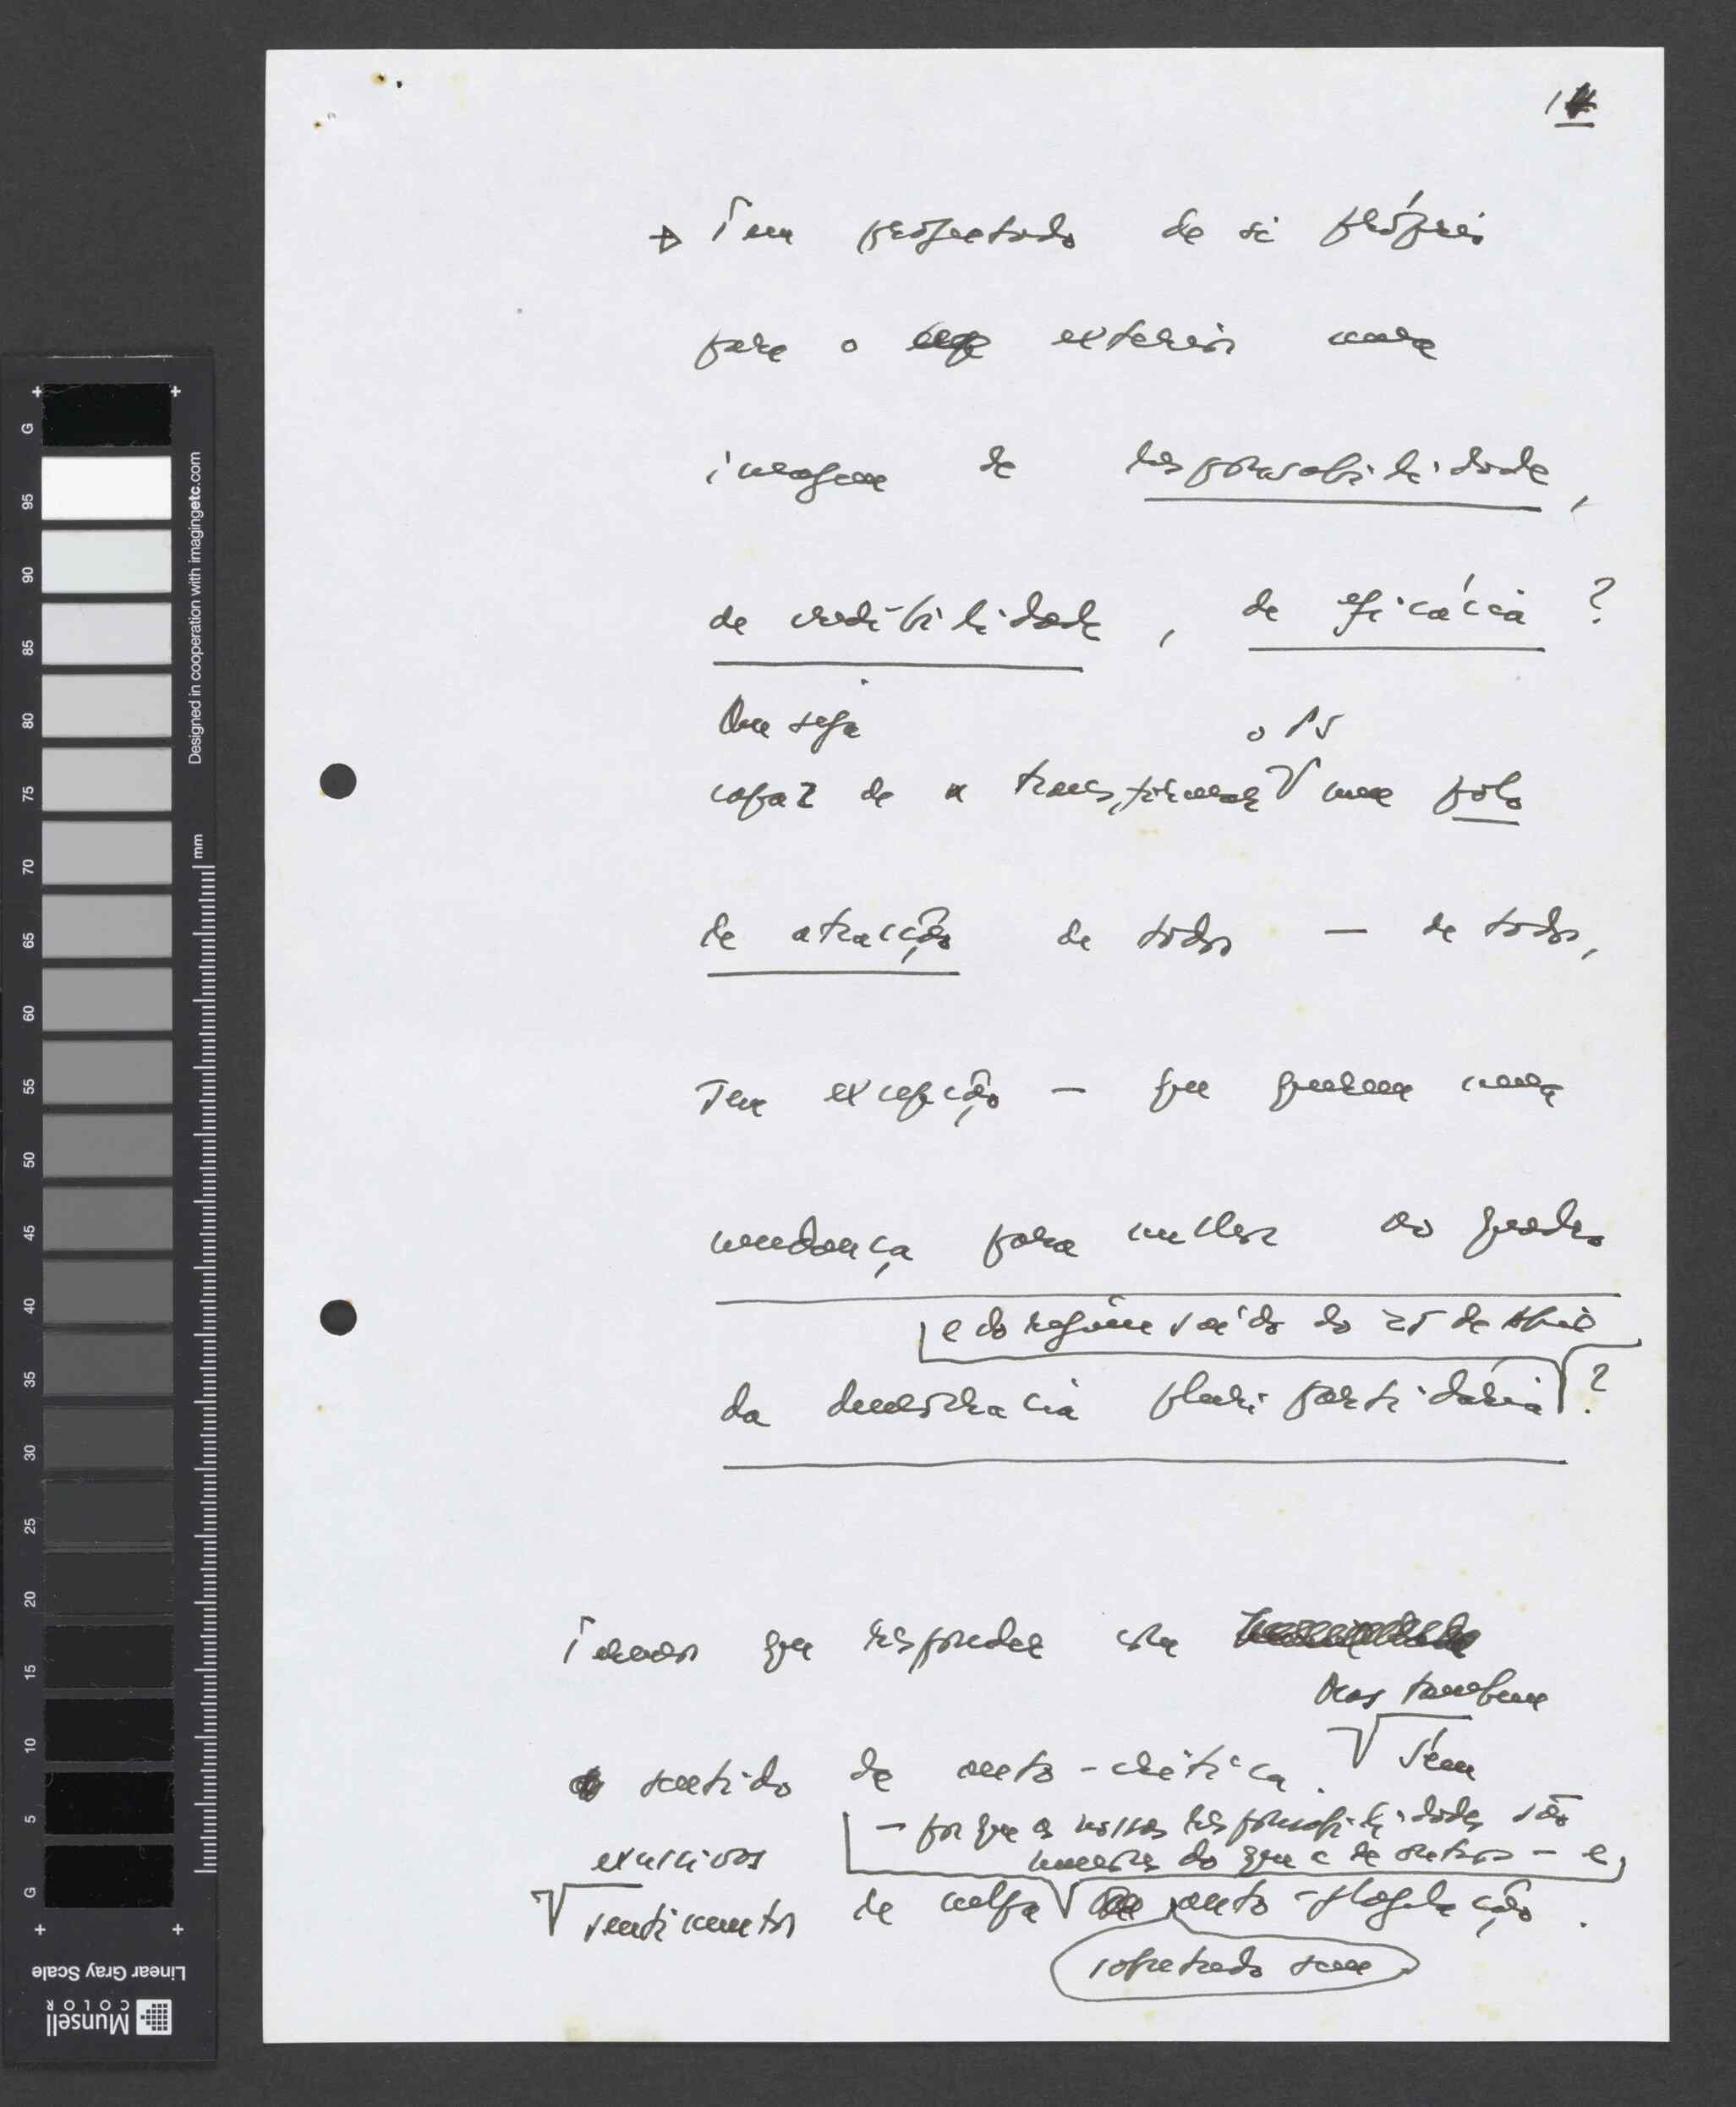 14
Tem projectado de si próprio
para o exterior uma
imagem de responsabilidade,
de credibilidade, de eficácia?
Ou seja o PS
capaz de transformar num polo
de atracção de todos — de todos,
sem excepção — que querem uma
mudança para melhor no quadro
e do regime saído do 25 de Abril
da democracia pluripartidária?
Temos que responder com
Mas também
sentido de auto-crítica. Sem
— porque as nossas responsabilidades são
excessivos maiores do que a de outros — e,
sentimentos de culpa auto-flagelação.
sobretudo sem
G 95 90 85 80 75 70 65 60 55 50 45 40 35 30 25 20 15 10 5 G
mm
Designed in cooperation with imagingetc.com
Linear Gray Scale
Munsell
COLOR